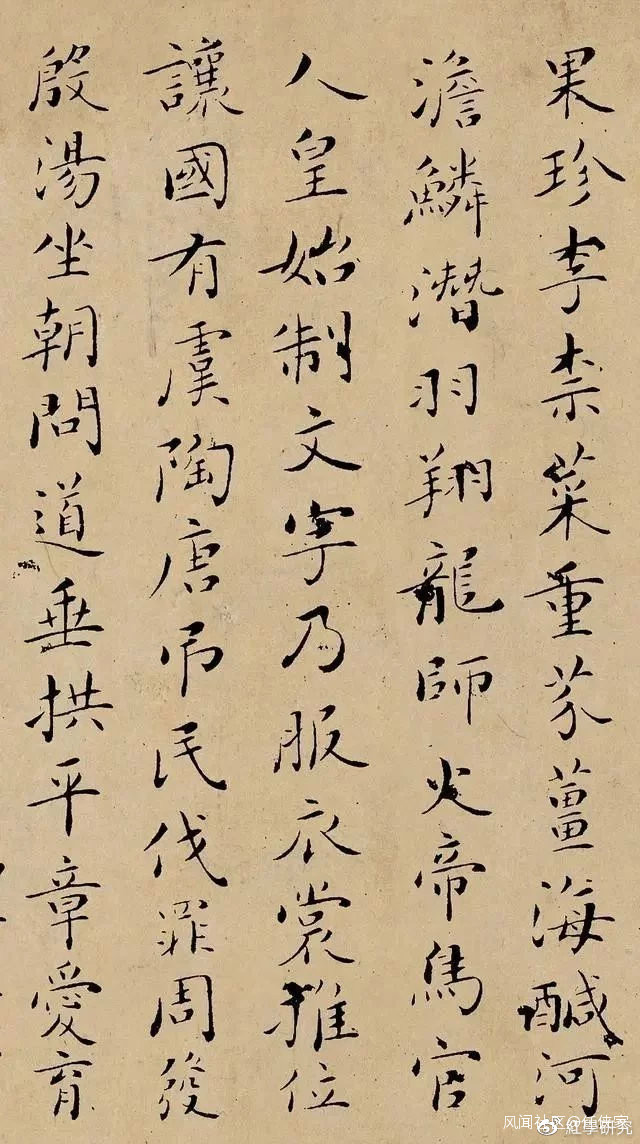 果珍李柰菜重芥薑海醎河
澹鱗潛羽翔龍師火帝鳥官
人皇始制文字乃服衣裳推位
讓國有虞陶唐吊民伐罪周發
殷湯坐朝問道垂拱平章愛育
风闻社区